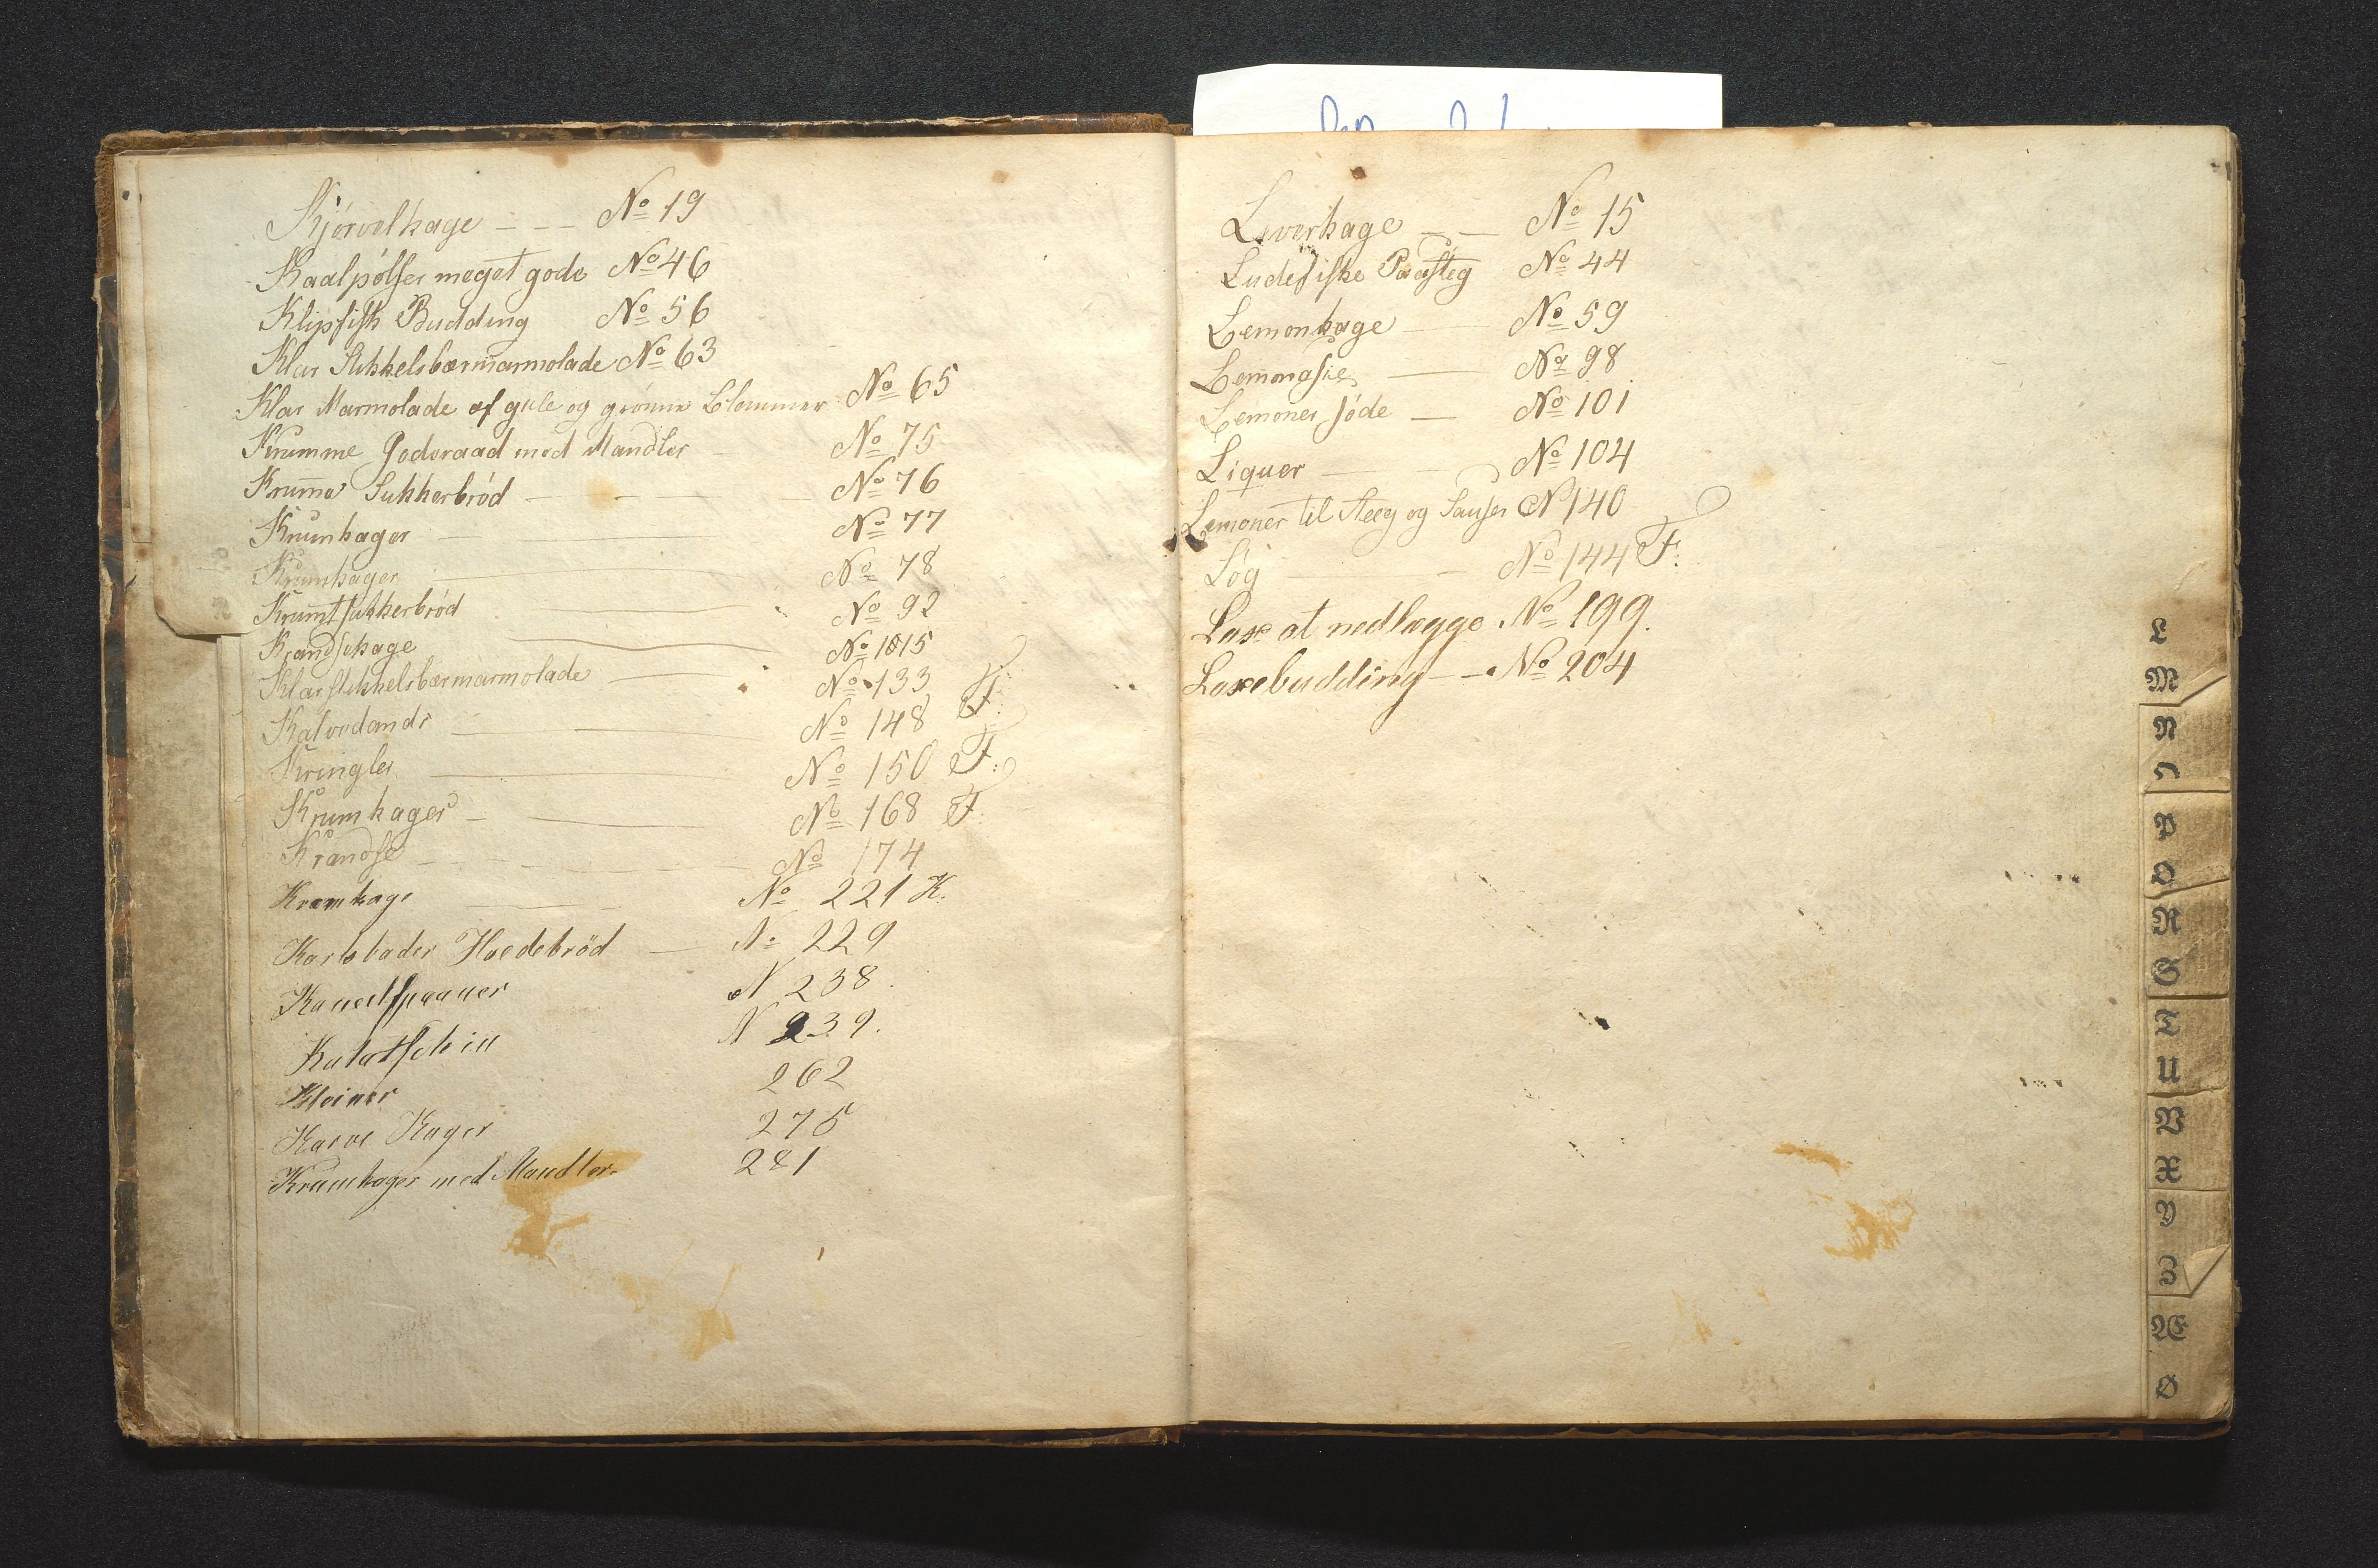 Kjørvelkage - - - No 19
Kaalpølser meget gode No 46
Klipfisk Budding No 56
Klar Stikkelsbærmarmolade No 63
Klar Marmolade af gule og grønne Blommer No 65
Krumme Goderaad med Mandler No 75
Krumme Sukkerbrød No 76
Krumkager No 77
Krumkager No 78
Krumt sukkerbrød No 92
Krandsekage No 115
Klar stikkelsbærmarmolade No 133
Kalvedands No 148 F.
Kringler No 150 F.
Krumkager No 168 F.
Krandse No 174
Kramkage No 221 K.
Karlsbader Hvedebrød No 229
Kaneelspaaner N 238.
N 239.
Kleiner 262
Karve Kager 275
Krumkager med Mandler 281
Leverkage No 15
Ludefiske Paasteg No 44
Lemonkage No 59
Lemonasie No 98
Lemoner søde No 101
Liquer No 104
Lemoner til Steeg og Sauser N 140
Løg No 144 F.
Lax at nedlægge No 199.
Laxebudding - - No 204
L
M
N
O
P
Q
R
S
T
U
V
X
Y
Z
Æ
Ø